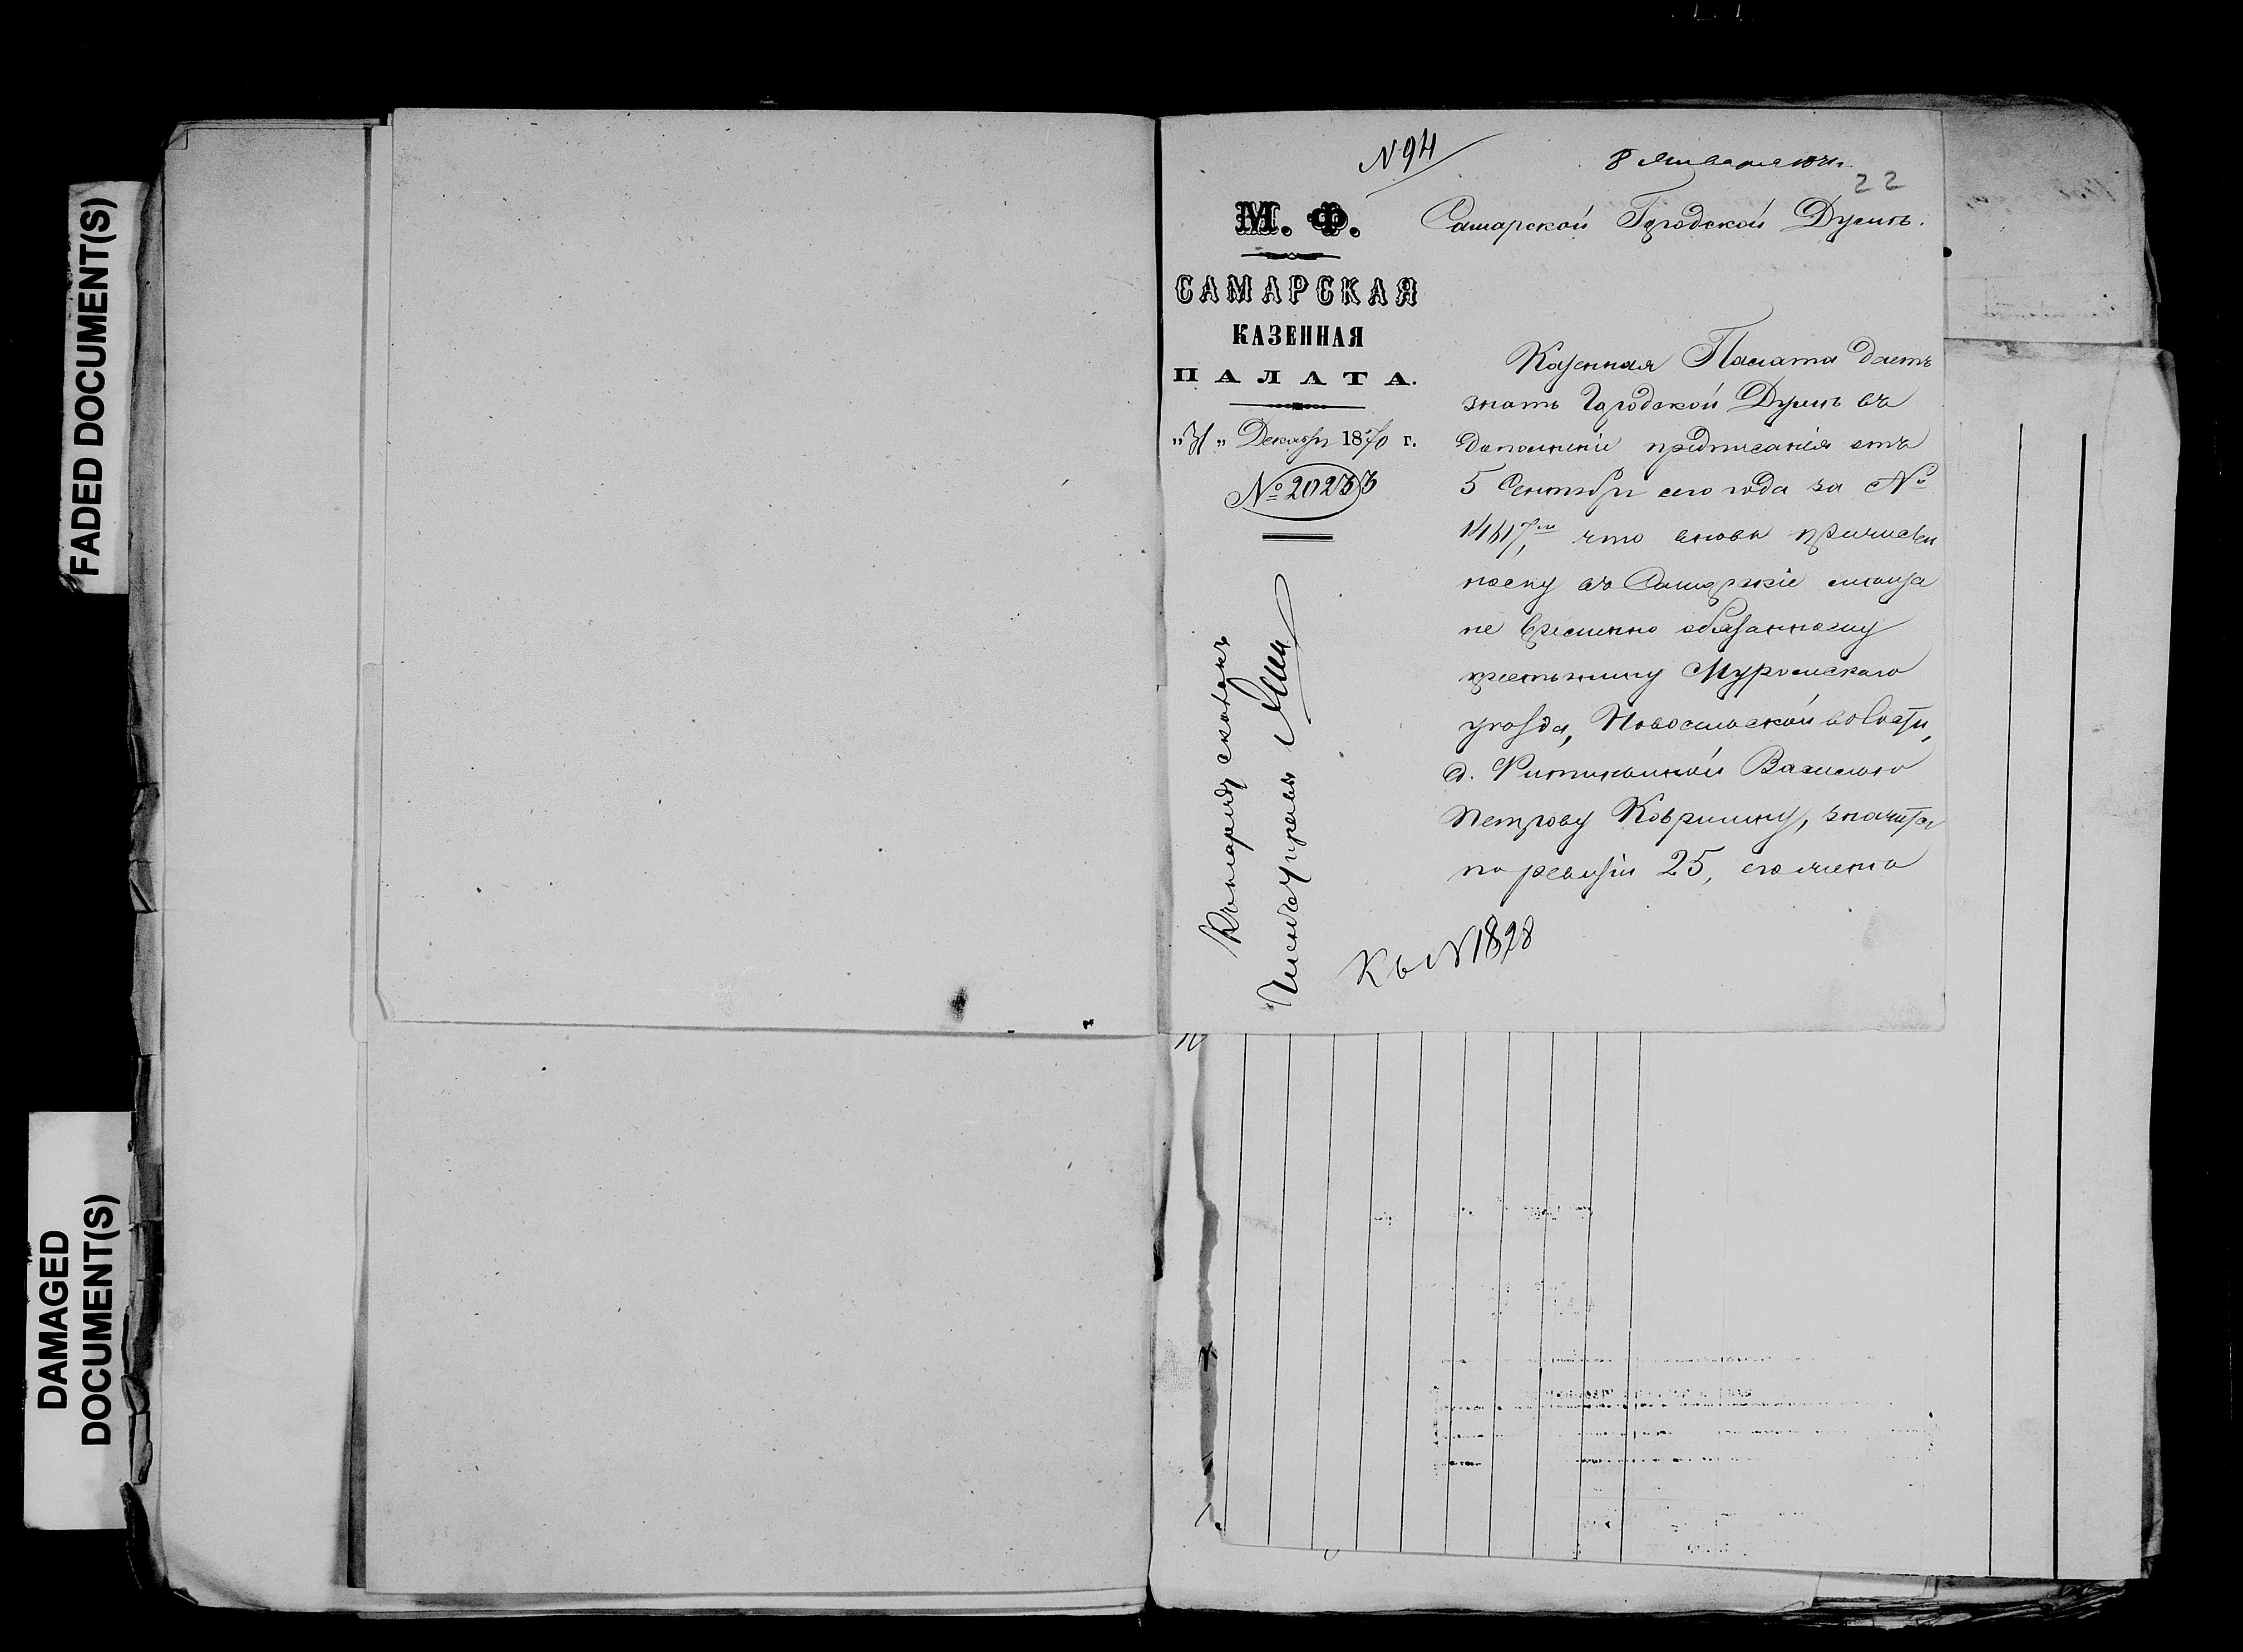 FADED DOCUMENT(S)
DAMAGED
DOCUMENT(S)
N 94
8 Января 1871 г.
22
М. Ф.
САМАРСКАЯ
КАЗЕННАЯ
ПАЛАТА.
„31„ Декабря 1870 г.
№ 20233
Самарской Городской Думѣ.
Казенная Палата даетъ
знать Городской Думѣ въ
дополненіе предписанія отъ
5 Сентября сего года за №
что вновь причислен
ному въ Самарскіе мѣща
не временно обязанному
крестьянину Муромскаго
уѣзда, Новосельской волости,
д. Василью
Петрову Ковришину, значится
по ревизіи 25, сложена
Къ N 1898